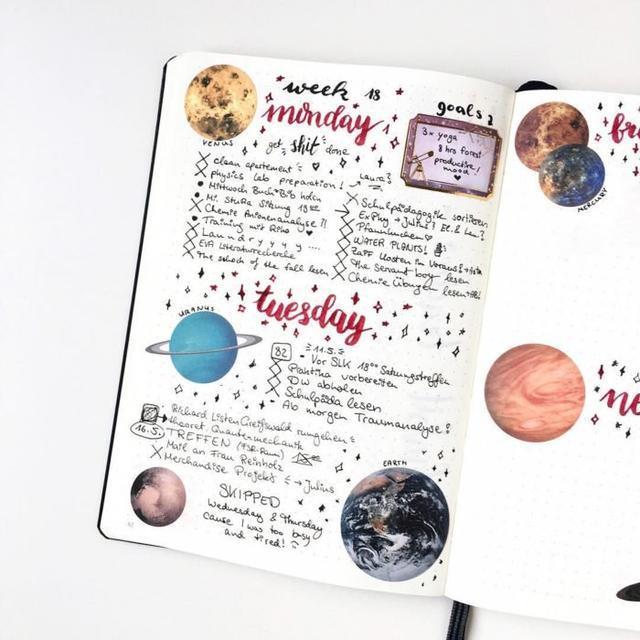 week 18
monday
get shit done
goals
3x yoga
8 hrs forest
productive!
mood
VENUS
clean apartement
physics lab preparation!
Mittwoch Buch + Bib holen
Mi. StuRa Sitzung 18
Chemie Anionenanalyse
Training mit Riko
Laundryyyy ....
EVA Literaturrecherche
The sketch of the fall lesen
Laura?
Schulpädagogik sortieren
ExPhy → Julius?
Pfannkuchen
WATER PLANTS!
ZaPF Kosten im Voraus
The servant boy lesen
Chemie Übungen lesen
tuesday
URANUS
82
11.5.
Vor SLK 18 Satzungstreffen
Praktika vorbereiten
DW abholen
Schulpäda lesen
Ab morgen Traumanalyse!
Richard Listen Greifswald rumgehen
theoret. Quantenmechanik
16.5. TREFFEN (FSR-Raum)
Mail an Frau Reinholz
Merchandise Projekt → Julius
SKIPPED
Wednesday & Thursday
cause I was too busy
and tired!
EARTH
MERCURY
fr